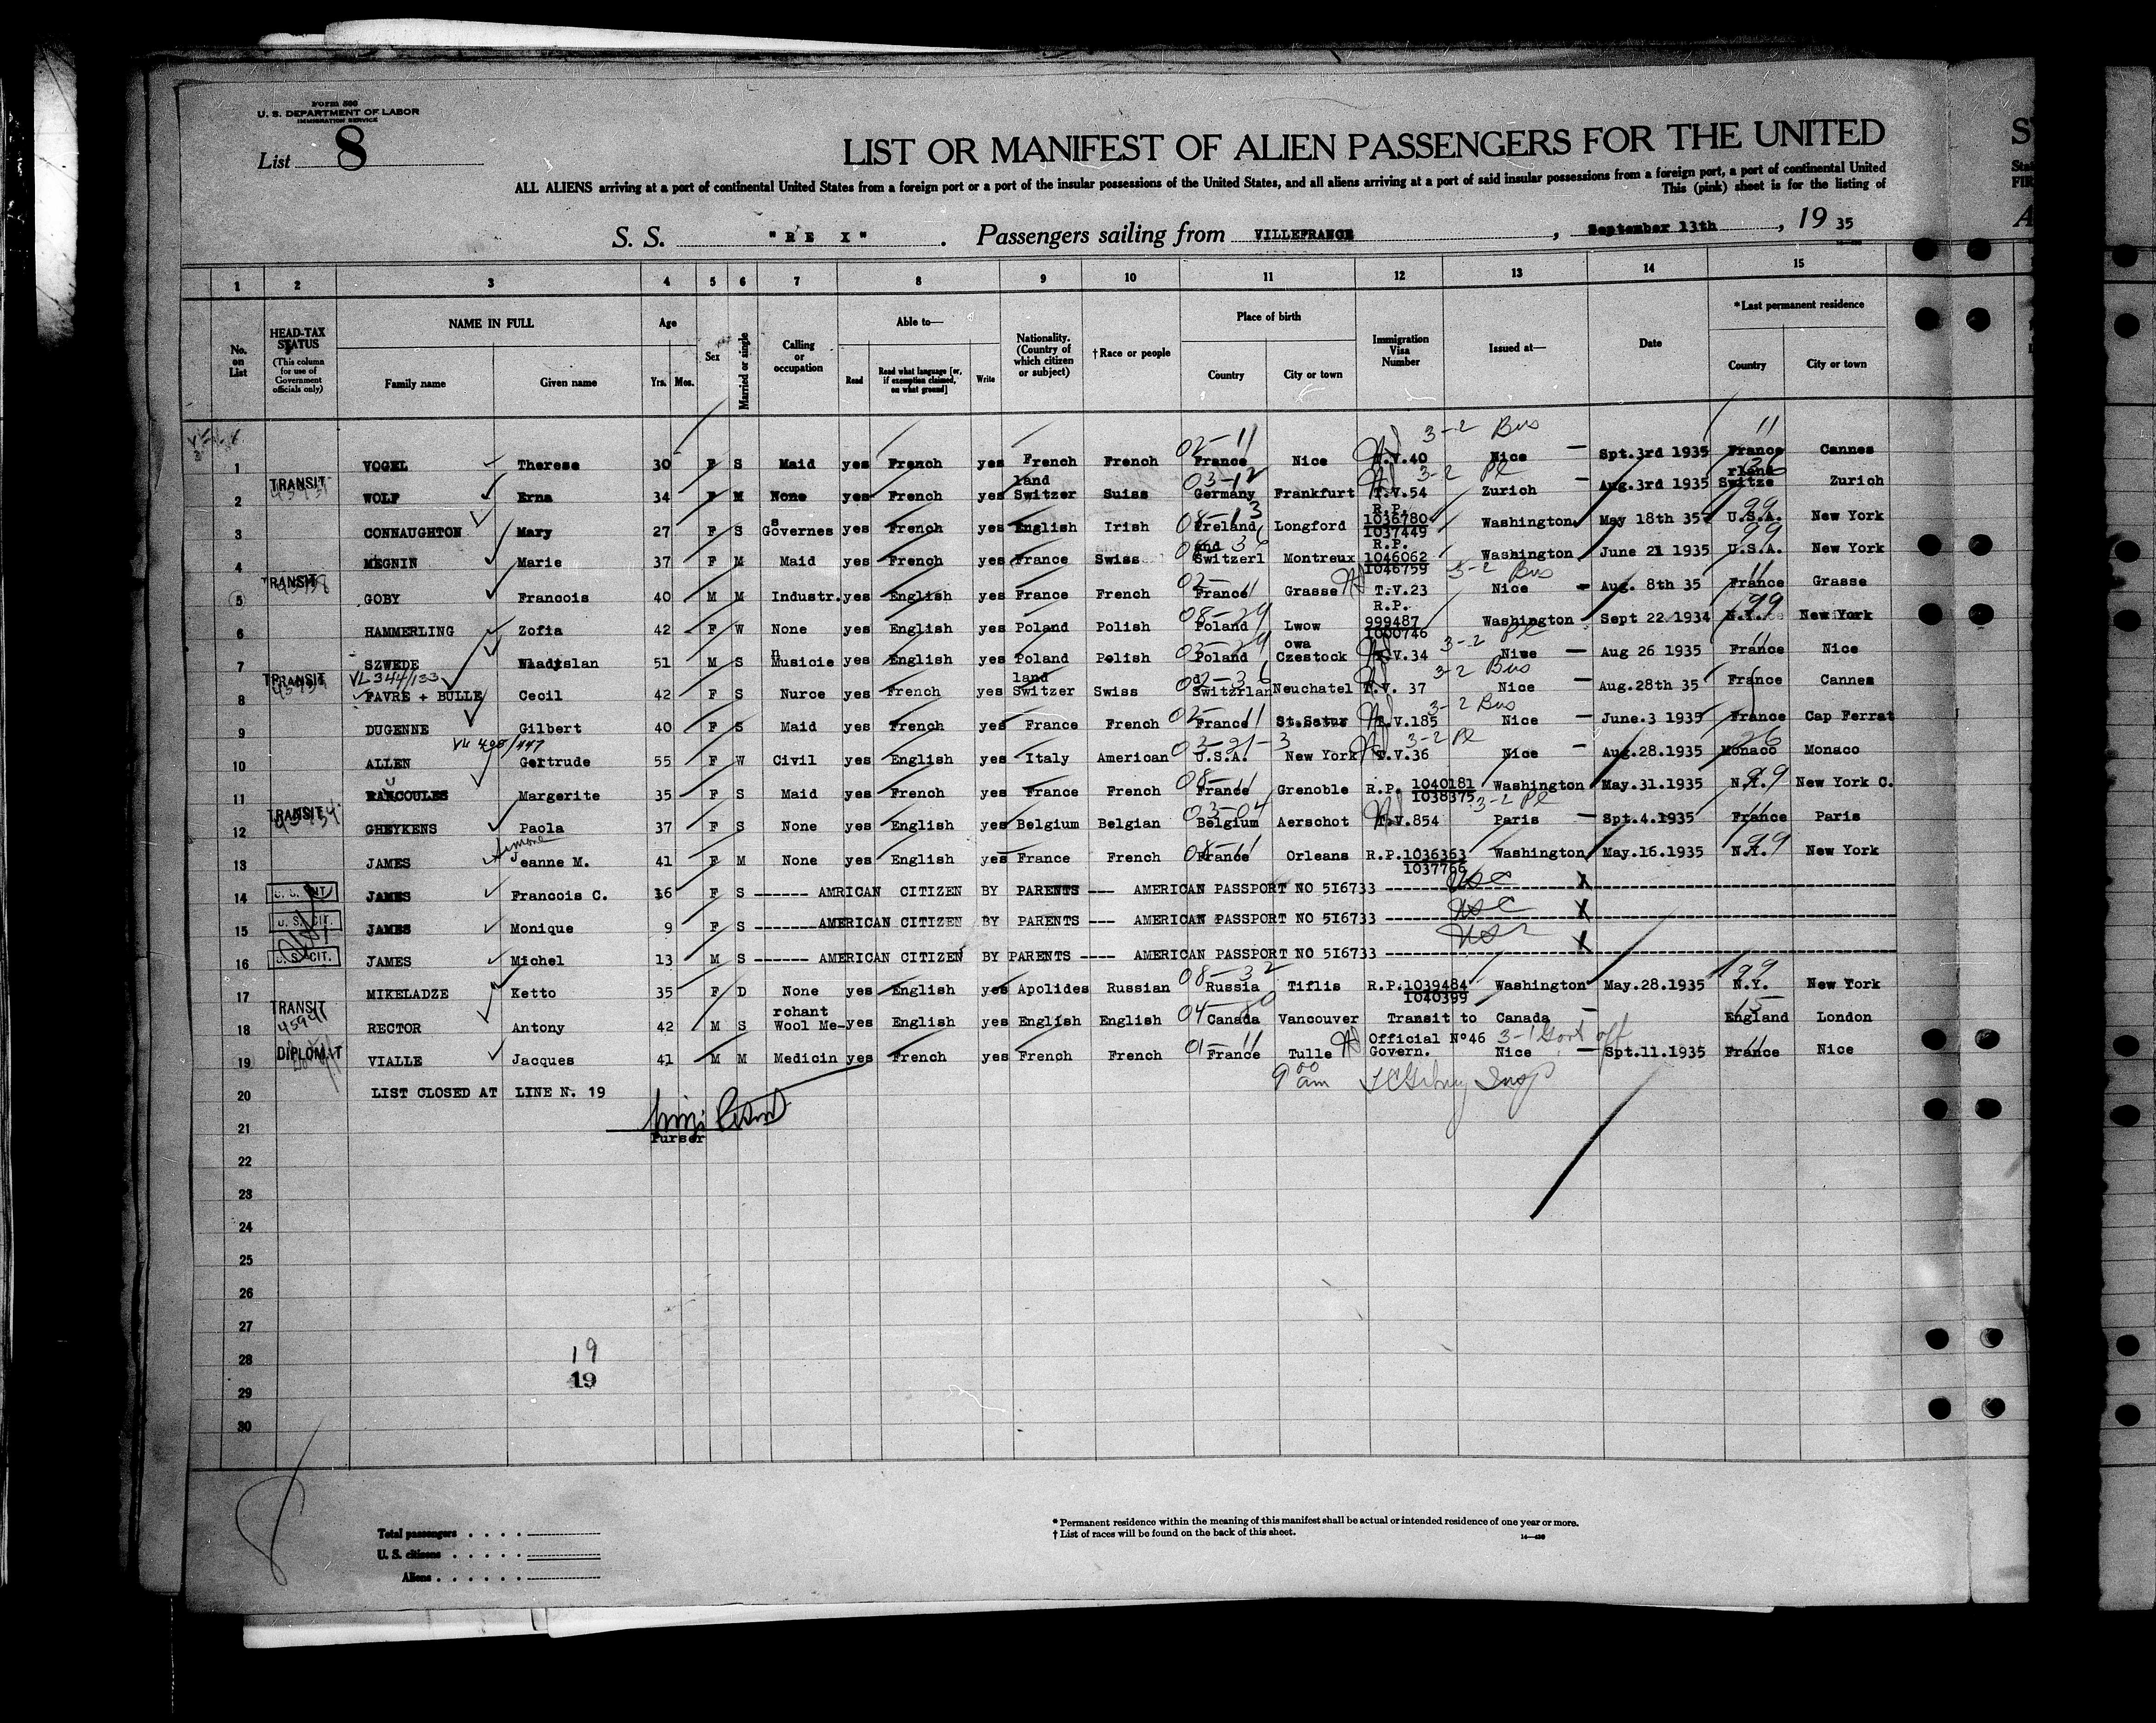 Form 500
U. S. DEPARTMENT OF LABOR
IMMIGRATION SERVICE
List 8
LIST OR MANIFEST OF ALIEN PASSENGERS FOR THE UNITED
ALL ALIENS arriving at a port of continental United States from a foreign port or a port of the insular possessions of the United States, and all aliens arriving at a port of said insular possessions from a foreign port, a port of continental United
This (pink) sheet is for the listing of
S. S. "R E X" . Passengers sailing from VILLEFRANCE , September 13th , 19 35
1 2 3 4 5 6 7 8 9 10 11 12 13 14 15
No. on List
HEAD-TAX STATUS (This column for use of Government officials only)
NAME IN FULL
Family name Given name
Age Yrs. Mos.
Sex
Married or single
Calling or occupation
Able to—
Read Read what language [or, if exemption claimed, on what ground] Write
Nationality. (Country of which citizen or subject)
†Race or people
Place of birth
Country City or town
Immigration Visa Number
Issued at—
Date
*Last permanent residence
Country City or town
1 VOGEL Therese 30 F S Maid yes French yes French French 02-11 France Nice T.V.40 3-2 Bus Nice — Spt.3rd 1935 11 France Cannes
2 TRANSIT WOLF Erna 34 F M None yes French yes Switzer land Suiss 03-12 Germany Frankfurt T.V.54 3-2 Pl Zurich — Aug.3rd 1935 Switze rland Zurich
3 CONNAUGHTON Mary 27 F S Governes s yes French yes English Irish Ireland Longford R.P. 1036780 1037449 Washington May 18th 35 99 U.S.A. New York
4 MEGNIN Marie 37 F M Maid yes French yes France Swiss Switzerl and Montreux R.P. 1046062 1046759 Washington June 21 1935 99 U.S.A. New York
5 TRANSIT GOBY Francois 40 M M Industr. yes English yes France French 02-11 France Grasse T.V.23 3-2 Bus Nice — Aug. 8th 35 11 France Grasse
6 HAMMERLING Zofia 42 F W None yes English yes Poland Polish 08-29 Poland Lwow R.P. 999487 1000746 Washington Sept 22 1934 99 N.Y. New York
7 SZWEDE Wladyslan 51 M S Musicie n yes English yes Poland Polish 03-29 Poland Czestock owa T.V.34 3-2 Pl Nice — Aug 26 1935 11 France Nice
8 TRANSIT VL 344/133 FAVRE + BULLE Cecil 42 F S Nurce yes French yes Switzer land Swiss 02-36 Switzrlan d Neuchatel T.V. 37 3-2 Bus Nice Aug.28th 35 France Cannes
9 DUGENNE Gilbert 40 F S Maid yes French yes France French 02-11 France St.Satur T.V.185 3-2 Bus Nice — June.3 1935 France Cap Ferrat
10 ALLEN Gertrude 55 F W Civil yes English yes Italy American 03-21-3 U.S.A. New York T.V.36 3-2 Pl Nice — Aug.28.1935 26 Monaco Monaco
11 RANCOULES Margerite 35 F S Maid yes French yes France French 08-11 France Grenoble R.P. 1040181 1038375 Washington May.31.1935 99 N.Y. New York C.
12 TRANSIT GHEYKENS Paola 37 F S None yes English yes Belgium Belgian 03-04 Belgium Aerschot T.V.854 3-2 Pl Paris — Spt.4.1935 11 France Paris
13 JAMES Simone Jeanne M. 41 F M None yes English yes France French 08-11 France Orleans R.P. 1036363 1037766 Washington May.16.1935 99 N.Y. New York
14 U. S. CIT. JAMES Francois C. 16 F S ------ AMRICAN CITIZEN BY PARENTS --- AMERICAN PASSPORT NO 5I6733 ------ USC X
15 U. S. CIT. JAMES Monique 9 F S ------ AMERICAN CITIZEN BY PARENTS --- AMERICAN PASSPORT NO 5I6733 ------ USC X
16 U. S. CIT. JAMES Michel 13 M S ------ AMERICAN CITIZEN BY PARENTS ---- AMERICAN PASSPORT NO 5I6733 ------ USC X
17 MIKELADZE Ketto 35 F D None yes English yes Apolides Russian 08-32 Russia Tiflis R.P. 1039484 1040399 Washington May.28.1935 99 N.Y. New York
18 TRANSIT RECTOR Antony 42 M S Wool Me- rchant yes English yes English English Canada Vancouver Transit to Canada — 15 England London
19 DIPLOMAT VIALLE Jacques 41 M M Medicin yes French yes French French 01-11 France Tulle Official Nº46 Govern. 3-1 Govt off Nice — Spt.11.1935 11 France Nice
20 LIST CLOSED AT LINE N. 19
9 00 am Insp
21
Purser
22
23
24
25
26
27
28
29
30
19
19
Total passengers . . . .
U. S. citizens . . . . .
Aliens . . . . . .
* Permanent residence within the meaning of this manifest shall be actual or intended residence of one year or more.
† List of races will be found on the back of this sheet.